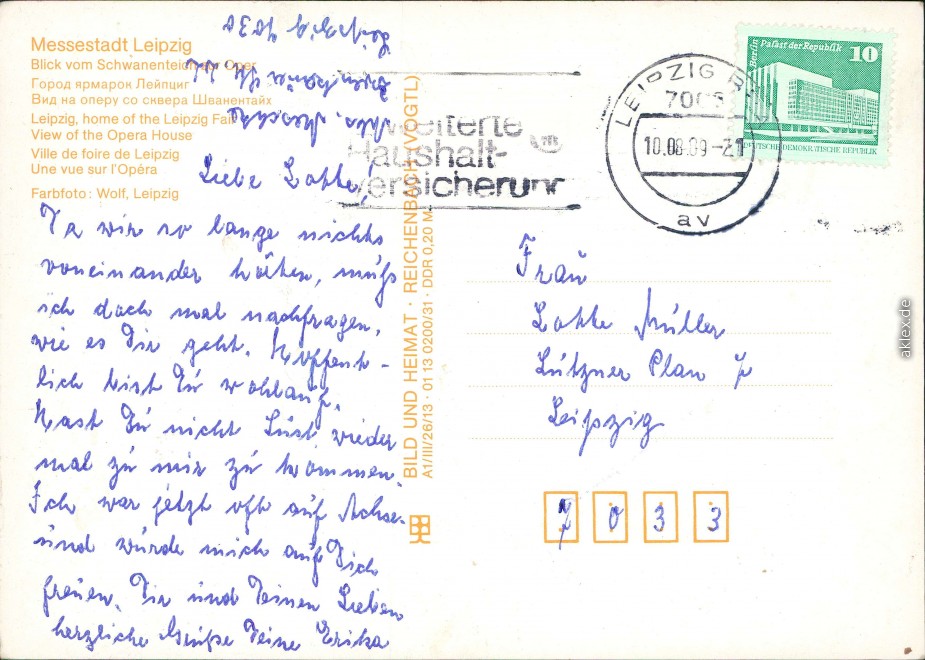 Messestadt Leipzig
Blick vom Schwanenteich zur Oper
Город ярмарок Лейпциг
Вид на оперу со сквера Шванентайх
Leipzig, home of the Leipzig Fair
View of the Opera House
Ville de foire de Leipzig
Une vue sur l'Opéra
Farbfoto: Wolf, Leipzig
Leipzig 7030
Liebe Lotte!
Da wir so lange nichts
voneinander hörten, muß
ich doch mal nachfragen,
wie es Dir geht. Hoffent-
lich bist Du wohlauf.
Hast Du nicht Lust, wieder
mal zu mir zu kommen.
Ich war jetzt oft auf Achse
und würde mich auf Dich
freuen. Dir und Deinen Lieben
herzliche Grüße Deine Erika
BILD UND HEIMAT · REICHENBACH (VOGTL)
A1/III/26/13 · 01 13 0200/31 · DDR 0,20 M
weiterte
Haushalt-
versicherung
LEIPZIG
10.08.89-21
av
Berlin Palast der Republik
10
DEUTSCHE DEMOKRATISCHE REPUBLIK
Frau
Lotte Müller
Lützner Plan
Leipzig
7 0 3 3
aklex.de